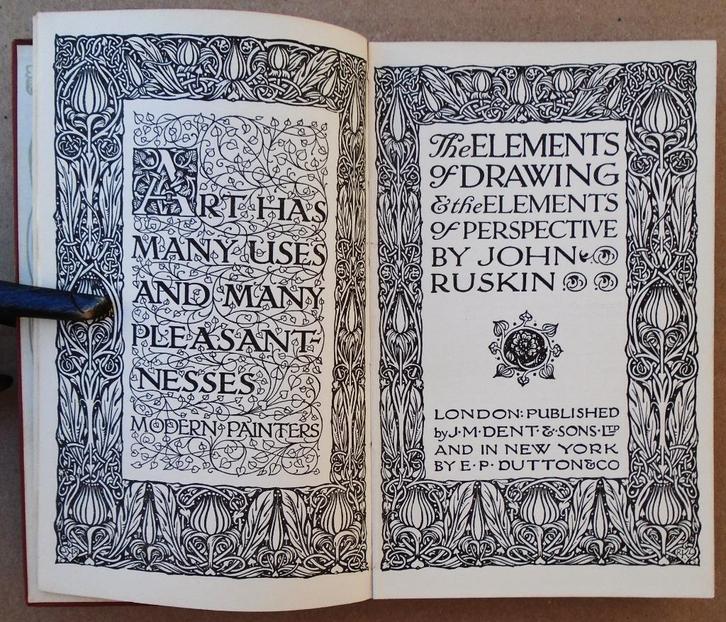 ART HAS
MANY USES
AND MANY
PLEASANT-
NESSES
MODERN PAINTERS
The ELEMENTS
of DRAWING
& the ELEMENTS
of PERSPECTIVE
BY JOHN
RUSKIN
LONDON: PUBLISHED
by J·M·DENT·&·SONS·LTD
AND IN NEW YORK
BY E·P·DUTTON & CO